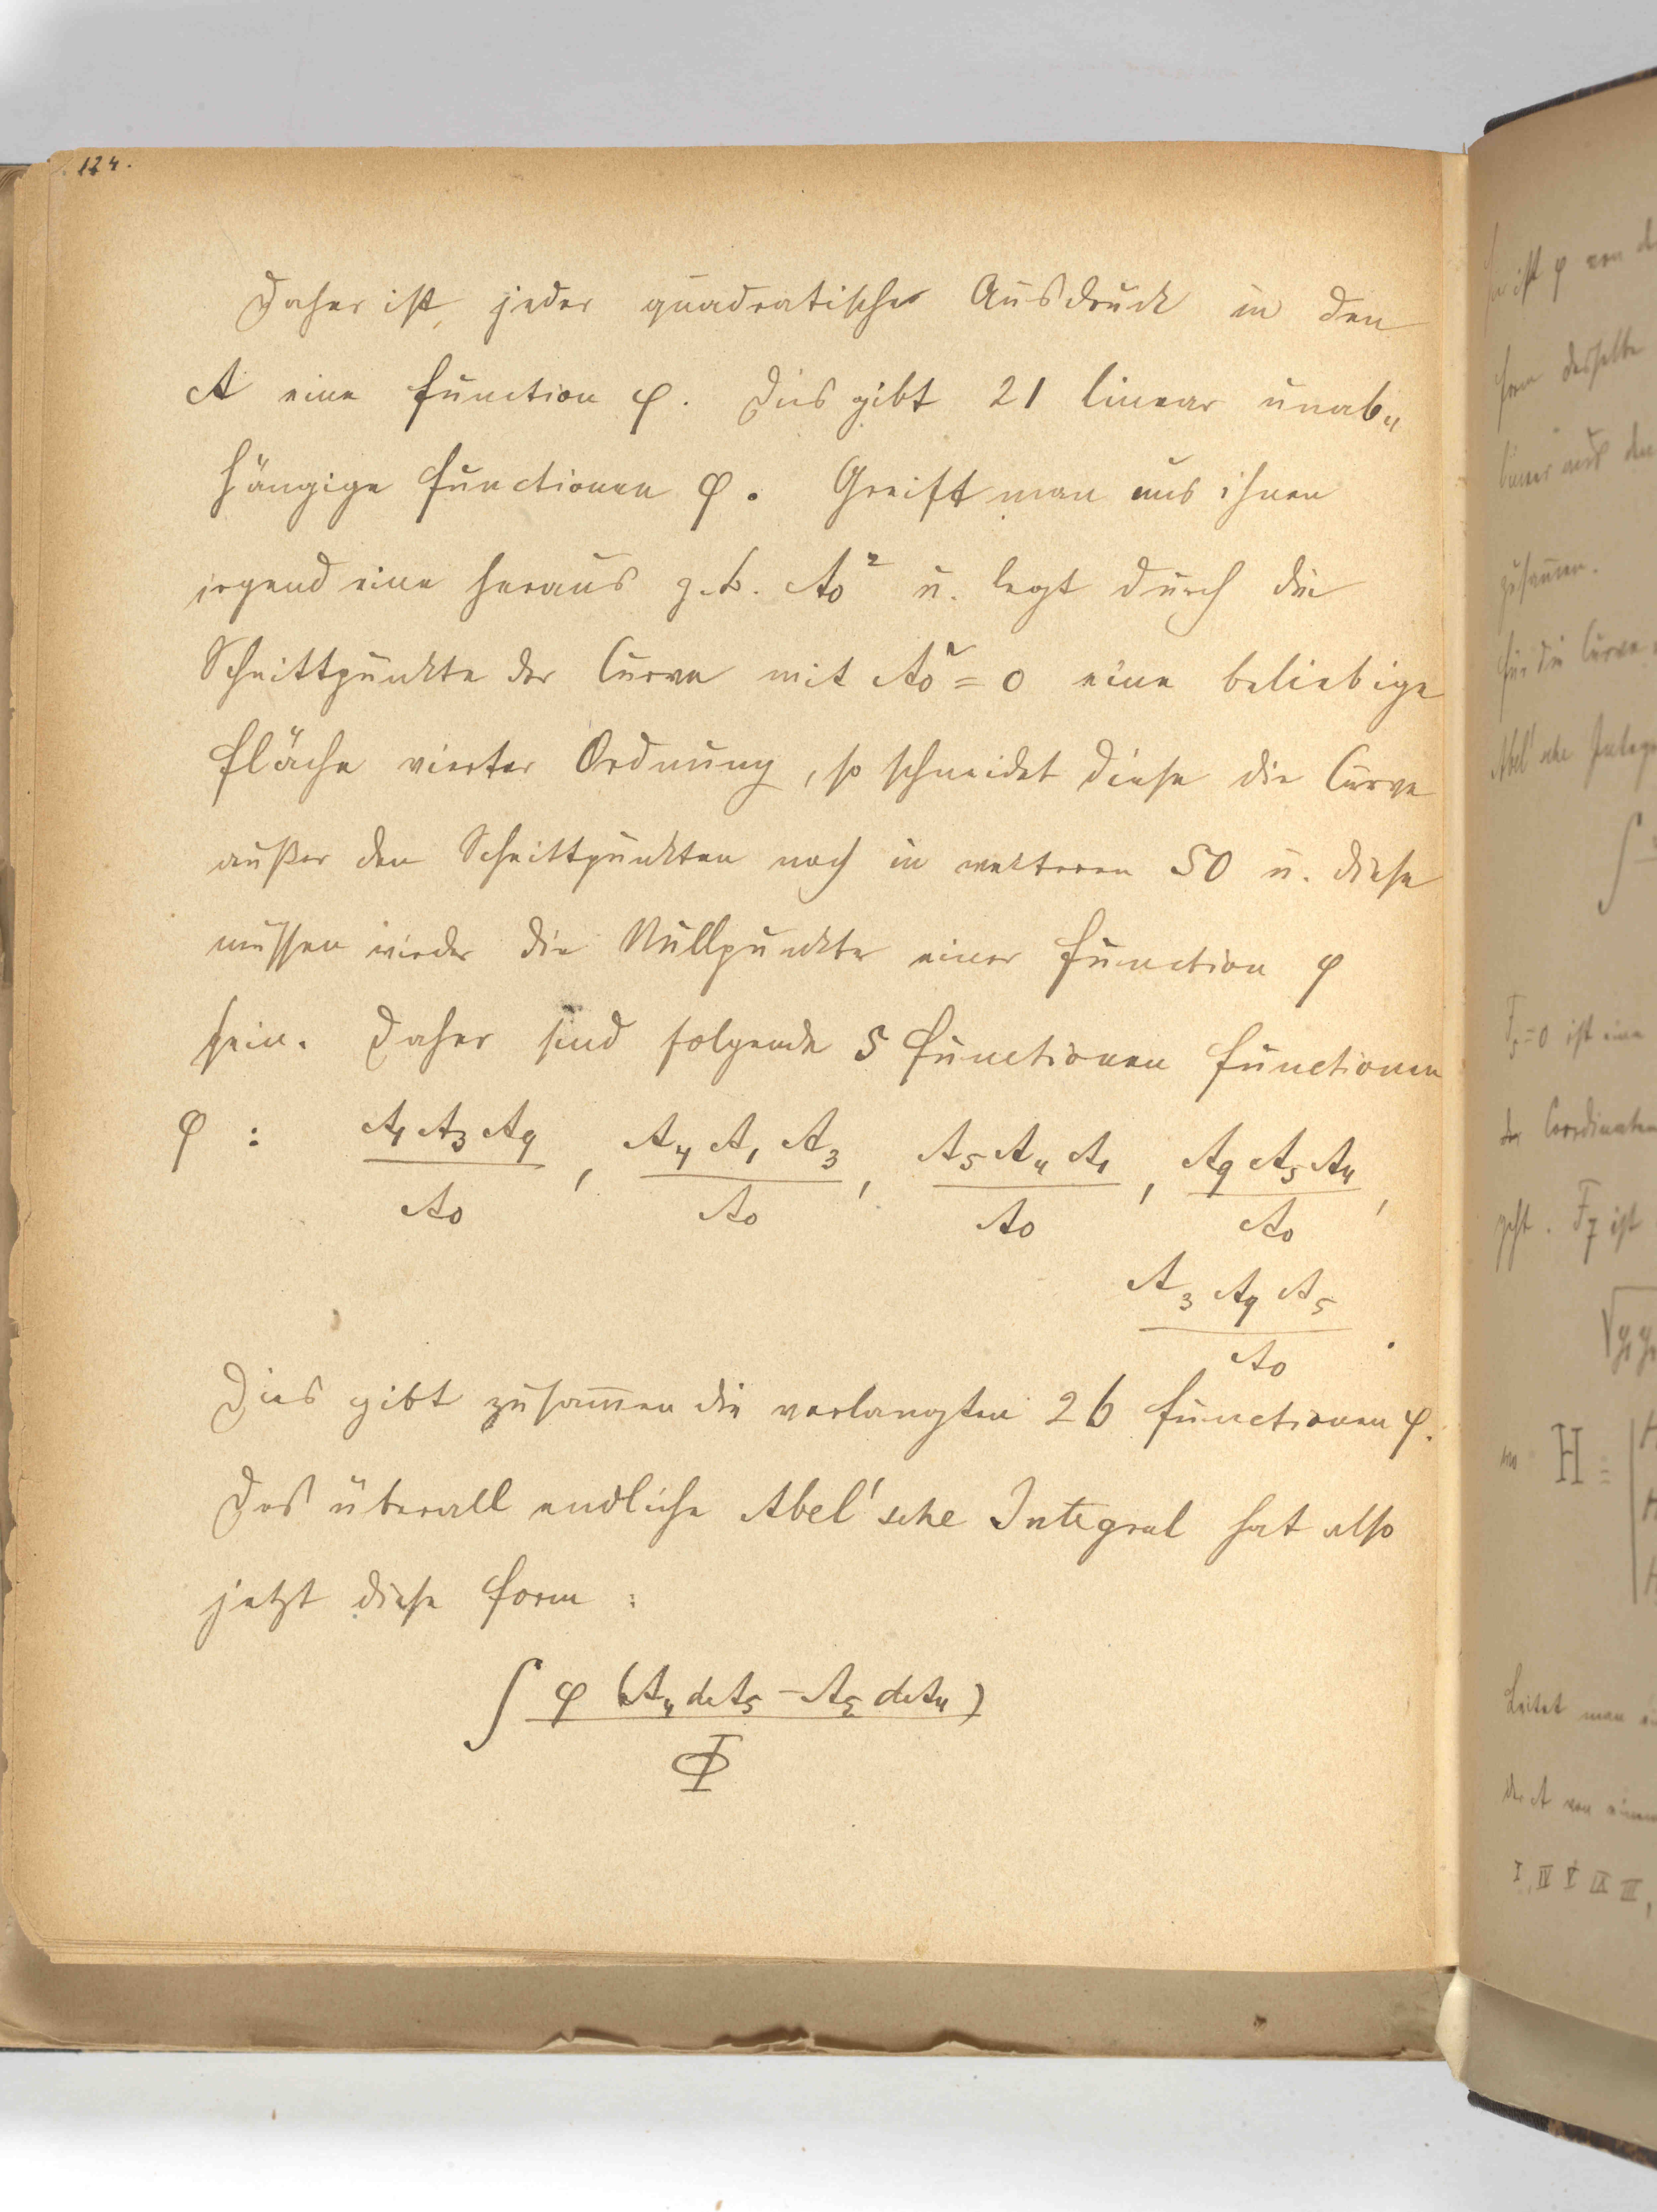 124.
Daher ist jeder quadratische Ausdruck in den
A eine Function φ. Dies gibt 21 linear unab„
hängige Functionen φ. Greift man aus ihnen
irgend eine heraus z.b. A₀² u. legt durch die
Schnittpunkte der Curve mit A₀² = 0 eine beliebige
Fläche vierter Ordnung, so schneidet diese die Curve
außer den Schnittpunkten noch in weiteren 50 u. diese
müssen wieder die Nullpunkte einer Function φ
sein. Daher sind folgende 5 Functionen Functionen
φ : A₁ A₃ A₉ / A₀ , A₄ A₁ A₃ / A₀ , A₅ A₄ A₁ / A₀ , A₉ A₅ A₄ / A₀ ,
A₃ A₉ A₅ / A₀ .
Dies gibt zusam̄en die verlangten 26 Functionen φ.
Das überall endliche Abel'sche Integral hat also
jetzt diese Form :
∫ φ (A₄ dA₅ – A₅ dA₄) / Φ
ist φ von
Form desselben
linear aus den
zusam̄en.
für die Curve
Abel'sche Integr
∫
F₅ = 0 ist eine
der Coordinaten
geht . F₇ ist
H =
Leitet man
der A von einem
I, IV V IX III,